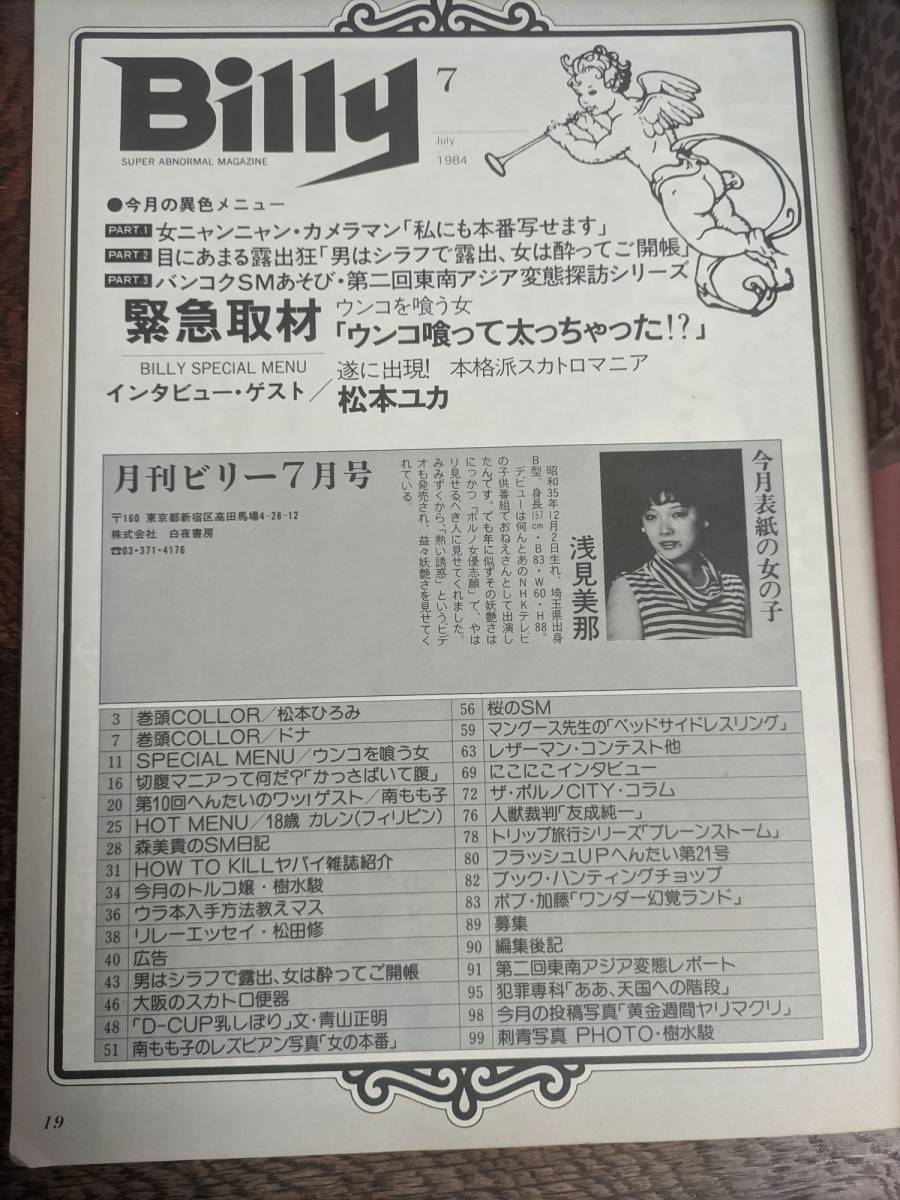 Billy
7
July
1984
SUPER ABNORMAL MAGAZINE
●今月の異色メニュー
PART.1 女ニャンニャン・カメラマン「私にも本番写せます」
PART.2 目にあまる露出狂「男はシラフで露出、女は酔ってご開帳」
PART.3 バンコクSMあそび・第二回東南アジア変態探訪シリーズ
緊急取材
ウンコを喰う女
「ウンコ喰って太っちゃった!?」
BILLY SPECIAL MENU
インタビュー・ゲスト/
遂に出現! 本格派スカトロマニア
松本ユカ
月刊ビリー7月号
〒160 東京都新宿区高田馬場4-28-12
株式会社 白夜書房
☎03・371・4176
今月表紙の女の子
浅見美那
昭和35年12月2日生れ、埼玉県出身
B型。身長157cm・B83・W60・H88。
デビューは何んとあのNHKテレビ
の子供番組でおねえさんとして出演し
たんです。でも年に似ずその妖艶さは
にっかつ「ポルノ女優志願」で、やは
り見せるべき人に見せてくれました。
みみずくから、「熱い誘惑」というビデ
オも発売され、益々妖艶さを見せてく
れている。
3 巻頭COLLOR/松本ひろみ
7 巻頭COLLOR/ドナ
11 SPECIAL MENU/ウンコを喰う女
16 切腹マニアって何だ?「かっさばいて腹」
20 第10回へんたいのワッ!ゲスト/南もも子
25 HOT MENU/18歳 カレン(フィリピン)
28 森美貴のSM日記
31 HOW TO KILLヤバイ雑誌紹介
34 今月のトルコ嬢・樹水駿
36 ウラ本入手方法教えマス
38 リレーエッセイ・松田修
40 広告
43 男はシラフで露出、女は酔ってご開帳
46 大阪のスカトロ便器
48 「D-CUP乳しぼり」文・青山正明
51 南もも子のレズビアン写真「女の本番」
56 桜のSM
59 マングース先生の「ベッドサイドレスリング」
63 レザーマン・コンテスト他
69 にこにこインタビュー
72 ザ・ポルノCITY・コラム
76 人獣裁判「友成純一」
78 トリップ旅行シリーズ「ブレーンストーム」
80 フラッシュUPへんたい第21号
82 ブック・ハンティングチョップ
83 ボブ・加藤「ワンダー幻覚ランド」
89 募集
90 編集後記
91 第二回東南アジア変態レポート
95 犯罪専科「ああ、天国への階段」
98 今月の投稿写真「黄金週間ヤリマクリ」
99 刺青写真 PHOTO・樹水駿
19